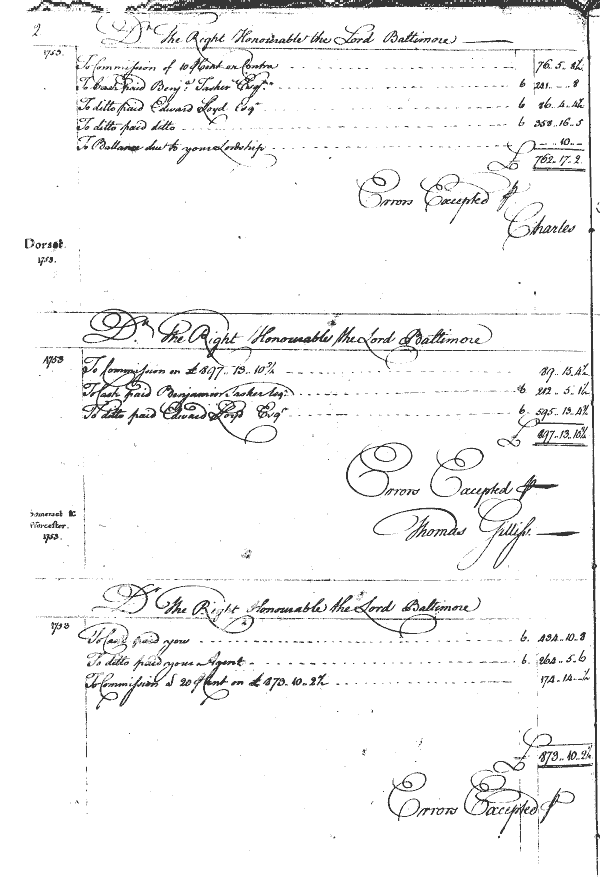 2
Dr. The Right Honourable the Lord Baltimore
1753. To Commission of 10 ⅌Cent on Contra 76..5..8½
To Cash paid Benja. Tasker Esqr. 6 281.....8
To ditto paid Edward Loyd Esqr 6 36..4..4½
To ditto paid ditto 6 358..16..5
To Ballance due to your Lordship ....10....
£ 762..17..2
Errors Excepted ⅌
Charles
Dorset.
1753.
Dr. The Right Honourable the Lord Baltimore
1753 To Commission on £897..13..10½ 13..4½
To Cash paid Benjamin Tasker Esqr. 6 212..5..1½
To ditto paid Edward Loyd Esqr 6. 595..13..4½
£ 897..13..10½
Errors Excepted ⅌
Thomas Gilliss.
Somerset &
Worcester.
1753.
Dr. The Right Honourable the Lord Baltimore
1753 To Cash paid you 6. 434..10..8
To ditto paid your Agent 6. 264..5..6
To Commission à 20 ⅌Cent on £873..10..2½ 174..14..½
£ 873..10..2½
Errors Excepted ⅌